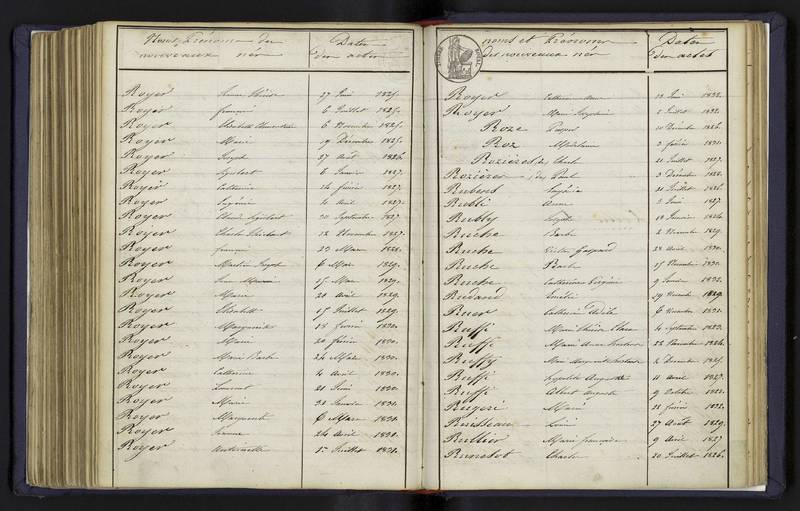 Noms, Prénoms des
nouveaux nés
Dates
des actes
Royer 27 Juin 1825.
Royer françois 6 Juillet 1825.
Royer Elisabeth 6 Novembre 1825.
Royer Marie 19 Décembre 1825.
Royer Joseph 27 Août 1826.
Royer 6 Janvier 1827.
Royer Catherine 14 février 1827.
Royer Eugénie 4 Avril 1827.
Royer 20 Septembre 1827.
Royer Charles 12 Novembre 1827.
Royer françois 23 Mars 1828.
Royer Martin Joseph 6 Mai 1829.
Royer 17 Mars 1829.
Royer Marie 20 Avril 1829.
Royer Elisabeth 17 Juillet 1829.
Royer Marguerite 18 février 1830.
Royer Marie 20 février 1830.
Royer Marie Barbe 24 Mars 1830.
Royer Catherine 4 Avril 1830.
Royer Laurent 21 Juin 1830.
Royer Marie 31 Janvier 1831.
Royer Marguerite 6 Mars 1831.
Royer 24 Avril 1831.
Royer Antoinette Juillet 1831.
noms et Prénoms
des nouveaux nés
Dates
des actes
Royer Catherine Anne 1832.
Royer Marie Joséphine 2 Juillet 1832.
Roze Prosper 10 Décembre 1826.
Roz Madelaine 3 février 1831.
Rozières (de) Charles 21 Juillet 1827.
Rozières (de) Paul 3 Décembre 1828.
Rubert Eugénie 21 Juillet 1826.
Rubli Anne 2 Juin 1827.
Rubly 18 Janvier 1824.
Ruche Barbe 2 Novembre 1829.
Ruche Victor Gaspard 28 Avril 1830.
Ruche Barbe 17 Novembre 1830.
Ruche Catherine Virginie 9 Janvier 1832.
Rudard Amélie 29 Novembre 1829.
Ruer Catherine Adèle 6 Novembre 1831.
Ruffi Marie Thérèse Clara 4 Septembre 1823.
Ruffi Marie Anne 22 Novembre 1824.
Ruffy Marie Marguerite 2 Décembre 1825.
Ruffi Hypolite Auguste 11 Avril 1827.
Ruffi Albert Auguste 9 Octobre 1828.
Rugeri Marie 28 février 1822.
Ruisseau Louis 27 Août 1829.
Rullier Marie françoise 9 Avril 1827.
Runetot Charles 20 Juillet 1826.